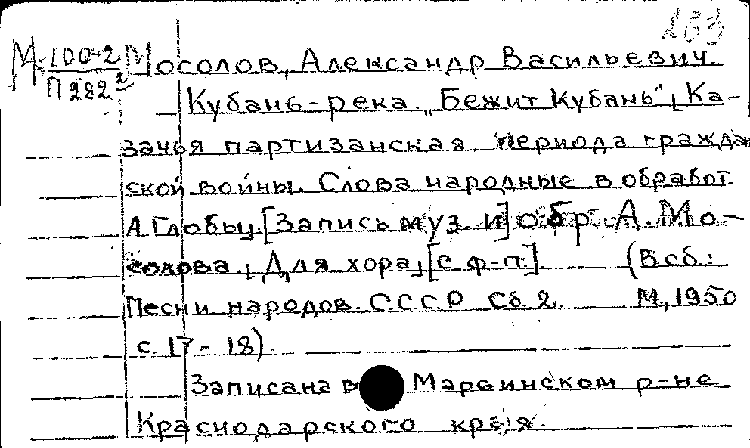 153
М 100-2 Мосолов, Александр Васильевич.
П 282²
Кубань-река. „Бежит Кубань", Ка-
зачья партизанская периода граждан
ской войны. Слова народные в обработ.
А. Глобы. [Запись муз. и] обр. А. Мо-
солова. Для хора, [с ф-п.] (В сб.:
Песни народов СССР Сб 2. М, 1950
с. 17-18).
Записана в Марьинском р-не
Краснодарского края.